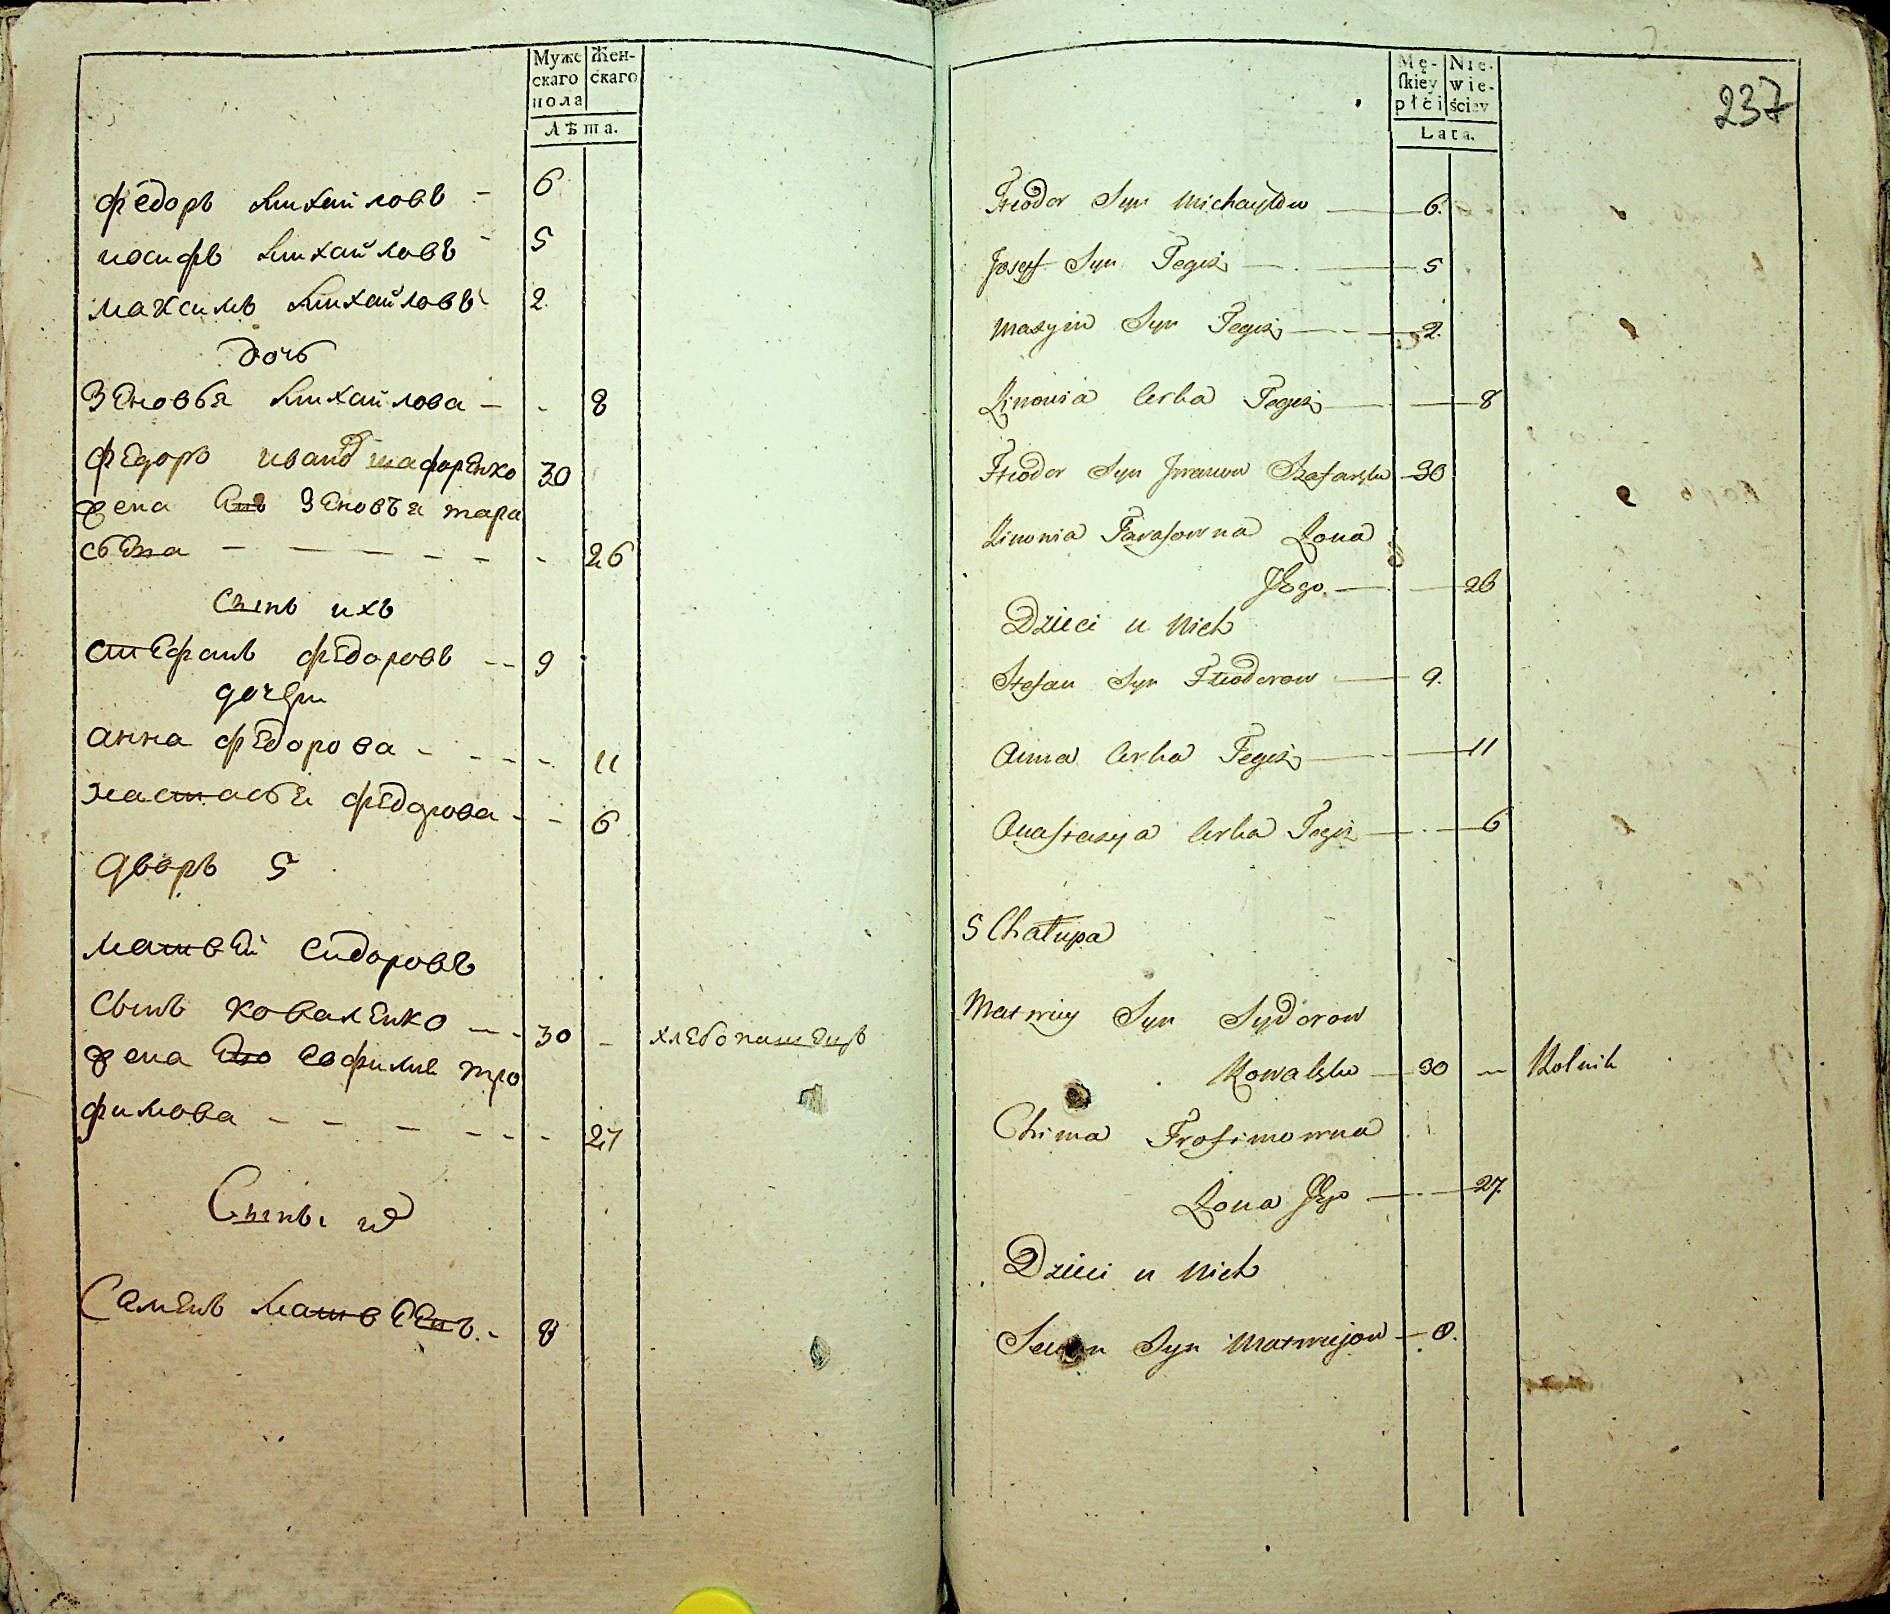 Муже
скаго
пола
Жен-
скаго
Лѣта.
федоръ михайловъ - 6
иосифъ михайловъ - 5
максимъ михайловъ 2
дочь
Зеновья михайлова - - 8
федоръ иванов шафаренко 30
жена его Зеновъя тара
сьева - - - - - - - 26
сынъ ихъ
стефанъ федоровъ -- 9
дочери
анна федорова - - - - - 11
настасья федорова - - 6
дворъ 5
матвей сидоровъ
сынъ коваленко --- 30 - хлебопашецъ
жена его ефимия тро
фимова - - - - - - 27
Сыны их
Семенъ матвеевъ - 8
Mę-
ſkiey
płći
Nie-
wie-
ściey
Lata.
237
Fteodor Syn Michayłow 6.
Josef Syn Tegoż 5
Maxym Syn Tegoż 2.
Zinowia Corka Tegoż 8
Fteodor Syn Iwanow Szafarzko 30
Zinowia Tarasowna Zona
Jego 26
Dzieci u Nich
Stefan Syn Fteodorow 9.
Anna Corka Tegoż 11
Anastazya Corka Tegoż 6
5 Chałupa
Matwiy Syn Sydorow
Kowalsko 30 — Rolnik
Chima Trofimowna
Zona Jego 27.
Dzieci u Nich
Semen Syn Matwiejow 8.